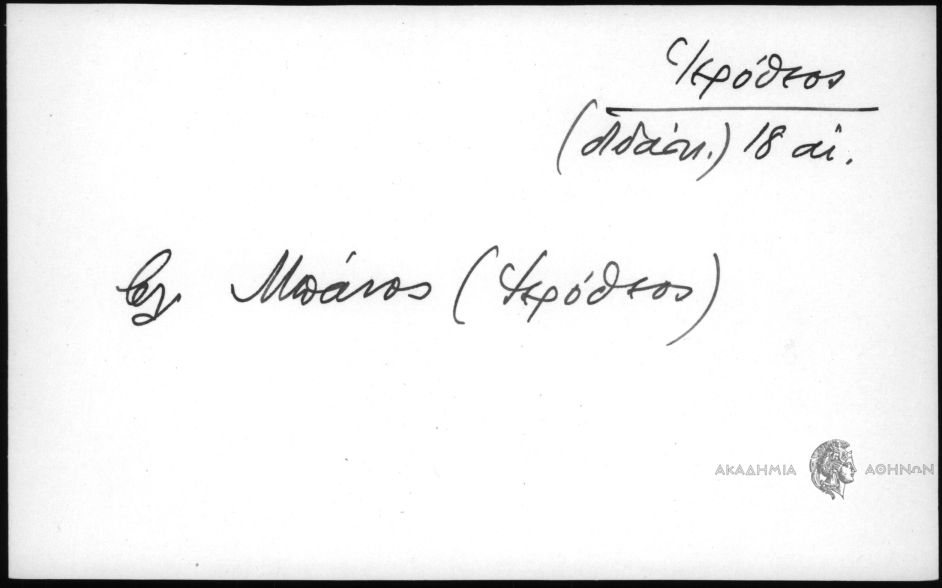 Ἱερόθεος
(διδάσκ.) 18 αἰ.
βλ. Μπάνος (Ἱερόθεος)
ΑΚΑΔΗΜΙΑ ΑΘΗΝΩΝ